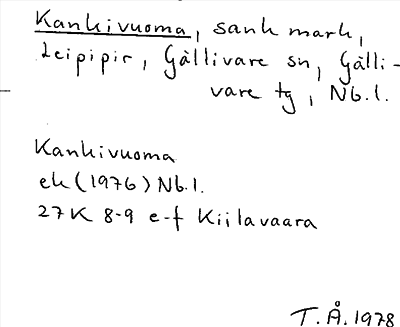 Kankivuoma, sank mark,
Leipipir, Gällivare sn, Gälli-
vare tg, Nb.l.
Kankivuoma
ek (1976) Nb.l.
27K 8-9 e-f Kiilavaara
T.Å. 1978